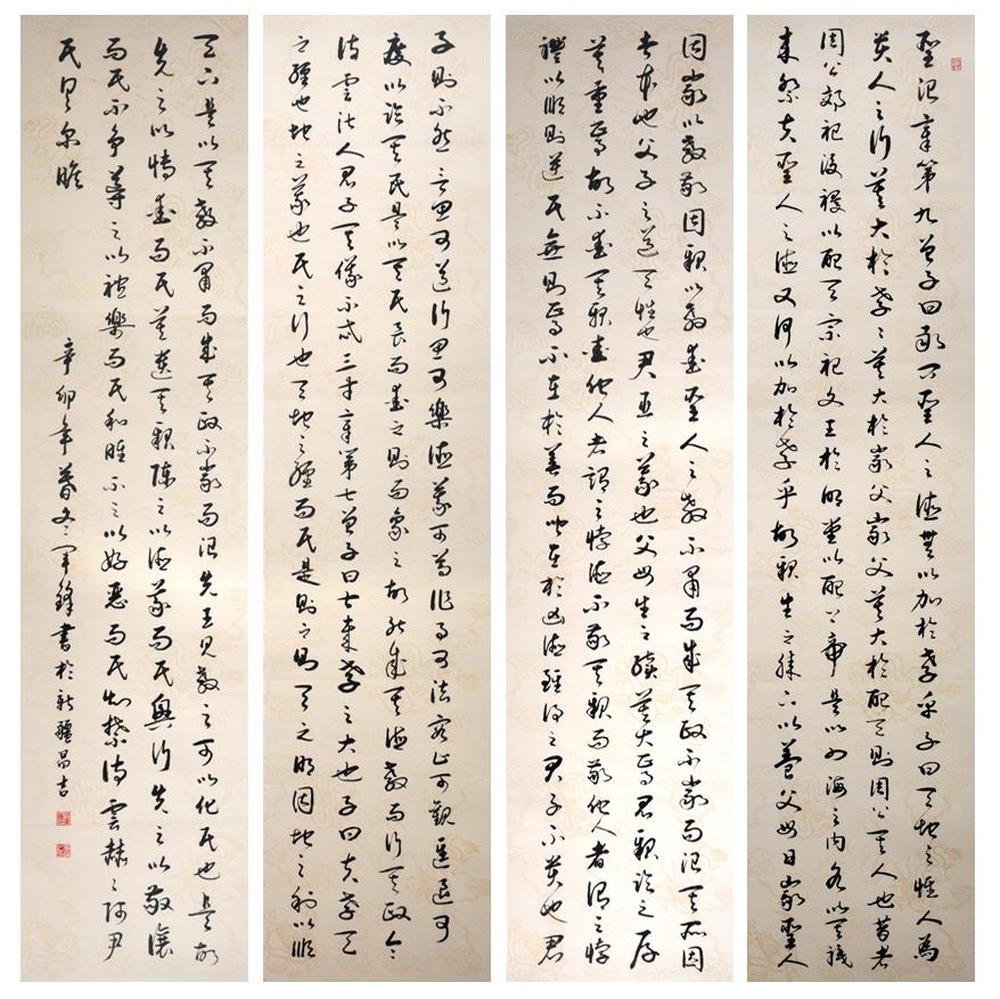 聖治章第九曾子曰敢問聖人之德無以加於孝乎子曰天地之性人為
貴人之行莫大於孝々莫大於嚴父嚴父莫大於配天則周公其人也昔者
周公郊祀后稷以配天宗祀文王於明堂以配上帝是以四海之內各以其職
來祭夫聖人之德又何以加於孝乎故親生之膝下以養父母日嚴聖人
因嚴以教敬因親以教愛聖人之教不肅而成其政不嚴而治其所因
者本也父子之道天性也君臣之義也父母生之續莫大焉君親臨之厚
莫重焉故不愛其親愛他人者謂之悖德不敬其親而敬他人者謂之悖
禮以順則逆民無則焉不在於善而皆在於凶德雖得之君子不貴也君
子則不然言思可道行思可樂德義可尊作事可法容止可觀進退可
度以臨其民是以其民畏而愛之則而象之故能成其德教而行其政令
詩雲淑人君子其儀不忒三才章第七曾子曰甚哉孝之大也子曰夫孝天
之經也地之義也民之行也天地之經而民是則之則天之明因地之利以順
天下是以其教不肅而成其政不嚴而治先王見教之可以化民也是故
先之以博愛而民莫遺其親陳之以德義而民興行先之以敬讓
而民不爭導之以禮樂而民和睦示之以好惡而民知禁詩雲赫々師尹
民具爾瞻
辛卯年暮冬軍鋒書於新疆昌吉